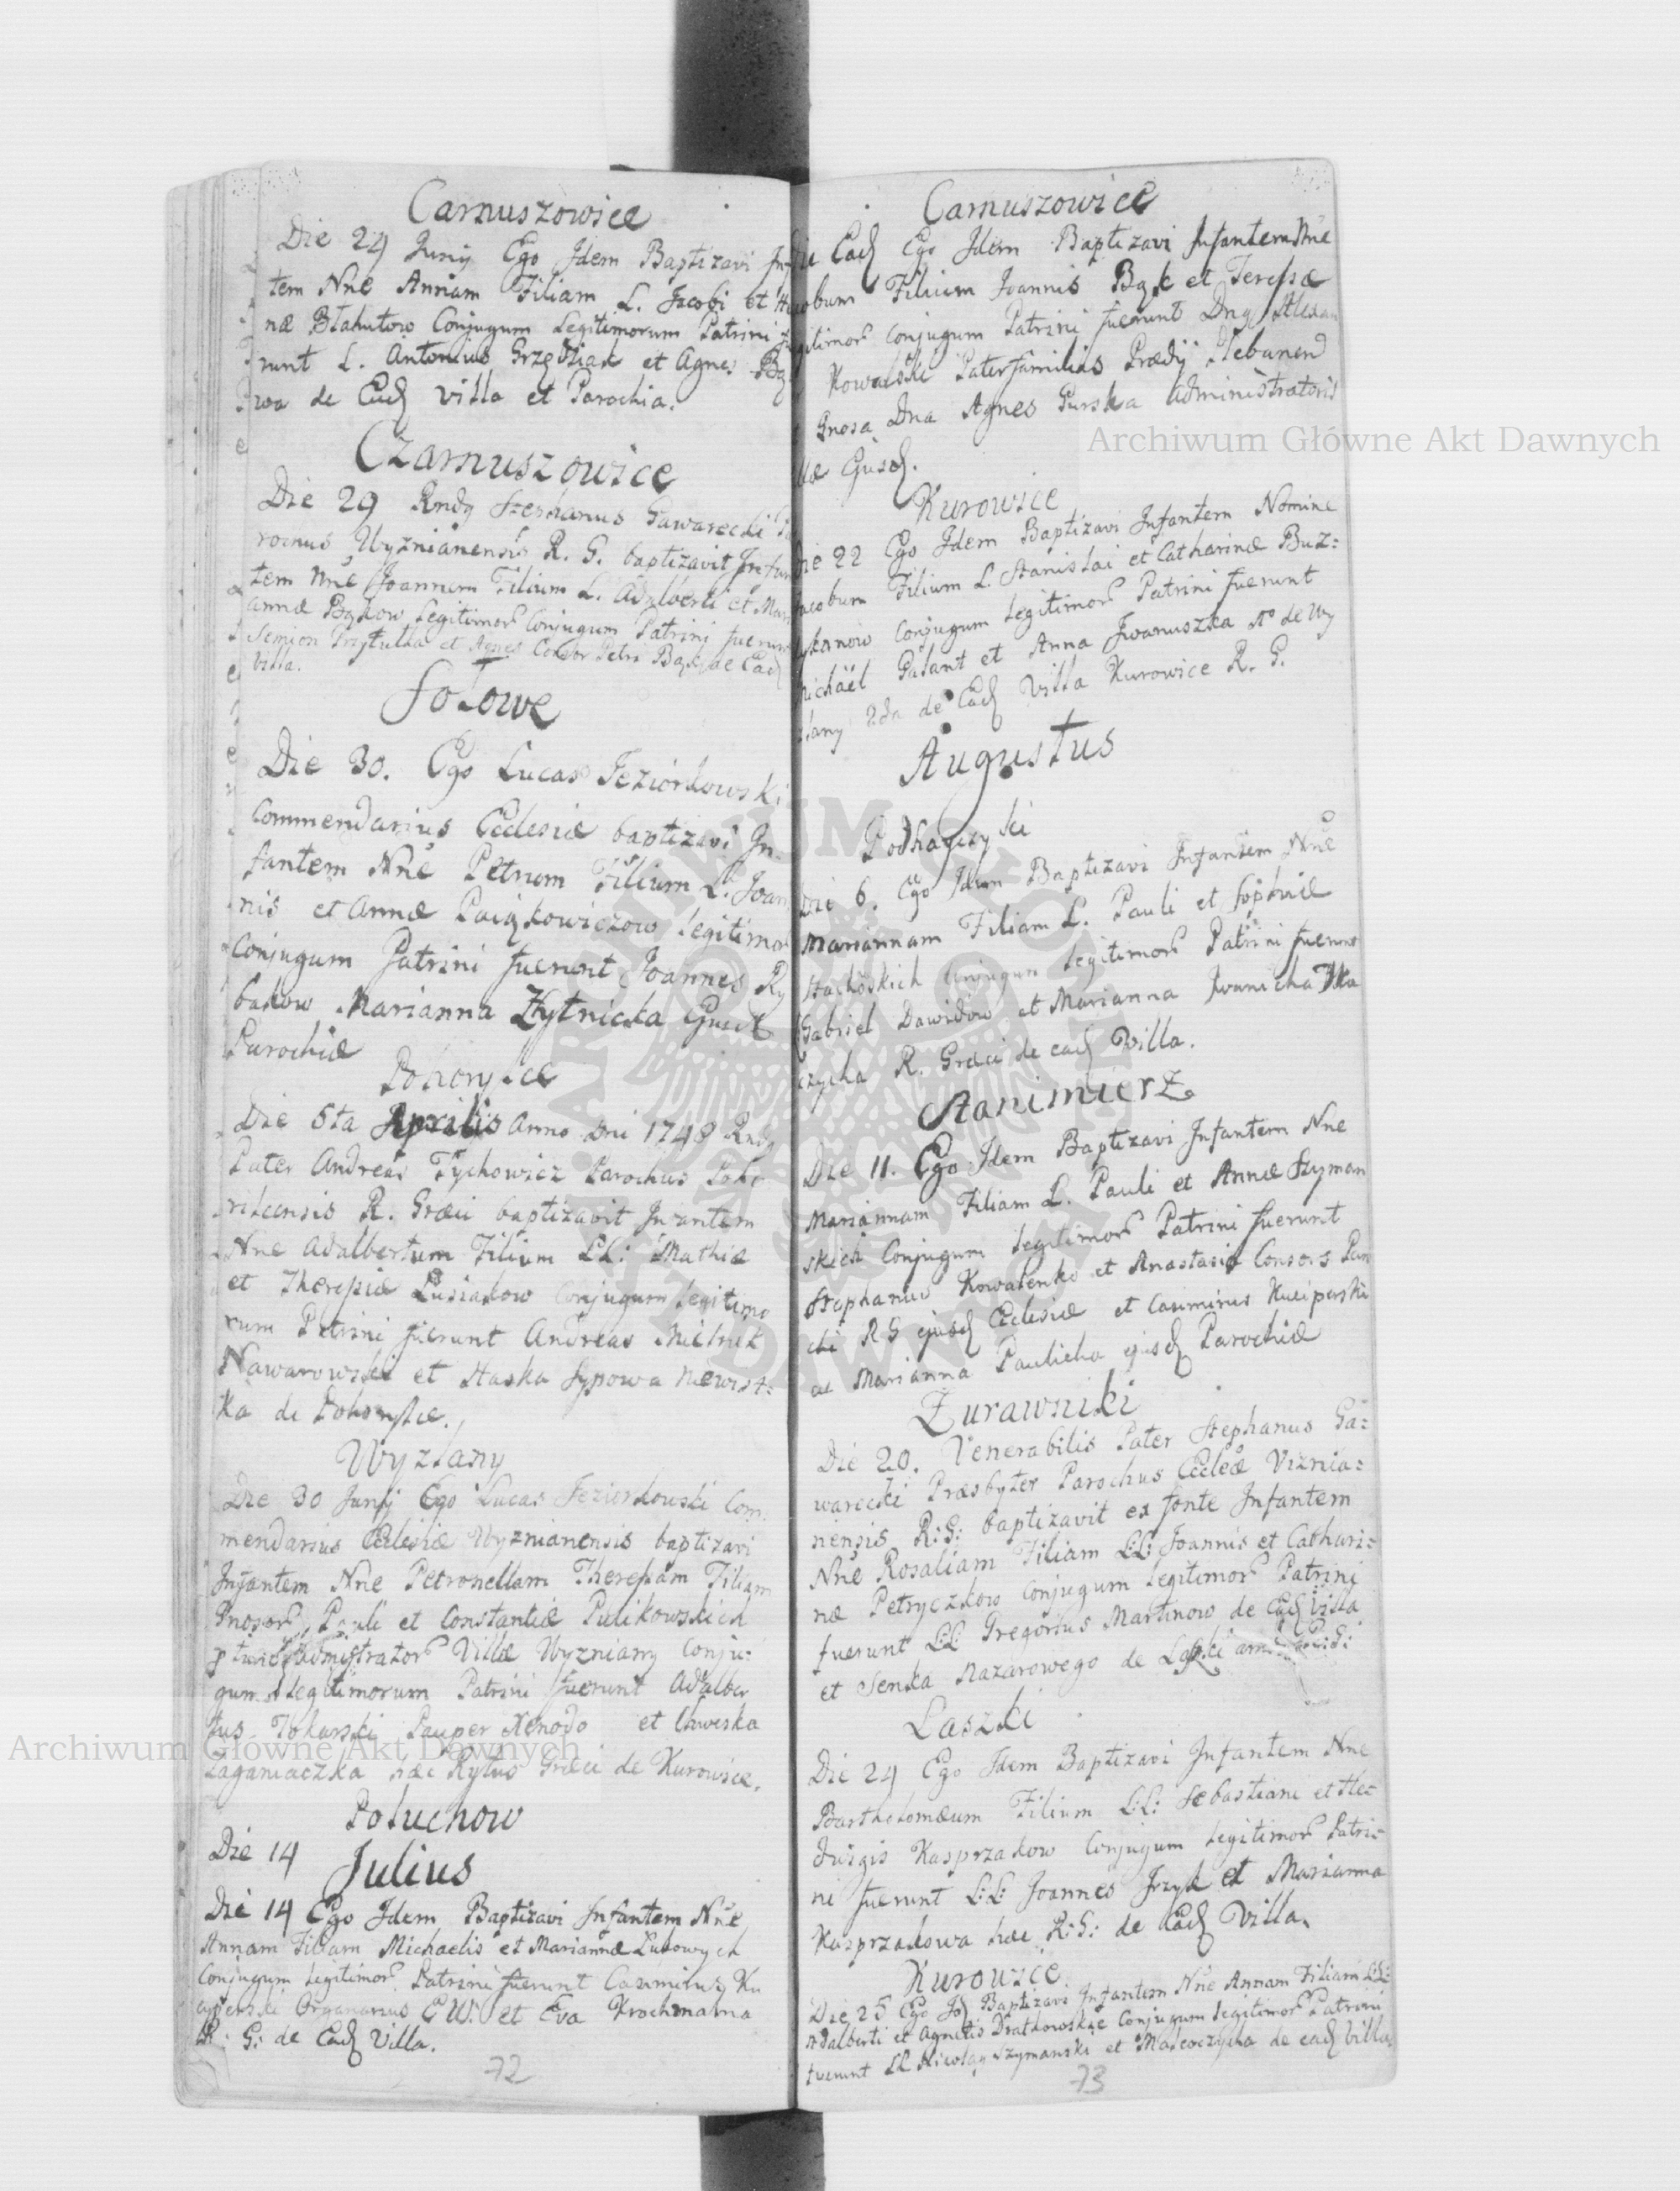 Carnuszowice
Die 24 Junij Ego Idem Baptizavi Inf
tem Nne Annam Filiam L. Jacobi et
næ Błahutow Conjugum Legitimorum Patrini
runt L. Antonius et Agnes
wa de Ead Villa et Parochia.
Czarnuszowice
Die 29 Rndg Stephanus Gawarecki
rochus Wyznianensis R. G. baptizavit Infan
tem Nne Joannem Filium L. Adalberti et Mari
annæ Bąkow Legitimor Conjugum Patrini fuerunt
Semion Prystulka et Agnes Consor Petri Bąk de Ead
Villa.
Die 30. Ego Lucas Jeziórkowski
Commendarius Ecclesiæ baptizavi In-
fantem Nne Petrum Filium L. Joan
nis et Annæ Legitimor
Conjugum Patrini fuerunt Joannes Ry
bakow Marianna Żytnicka
Parochiæ
Pohorylce
Die 5ta Aprilis Anno Dni 1748 Rndg
Pater Andreas Tychowicz Parochus Poho
rilcensis R. Græci baptizavit Infantem
Nne Adalbertum Filium LL: Mathiæ
et Theresiæ Lusiakow Conjugum Legitimo
rum Patrini fuerunt Andreas Mielnik
Nawarowski et Staska Sypowa Newist-
ka de Pohorylce.
Wyzlany
Die 30 Junij Ego Lucas Jeziorkowski Com
mendarius Ecclesiæ Wyznianensis baptizavi
Infantem Nne Petronellam Theresiam Filiam
Gnosor Pauli et Constantiæ Pulikowskich
Administrator Villæ Wyzniany Conju-
gum Legitimorum Patrini fuerunt Adalber
tus Tokarski Pauper Xenodo et
Zaganiaczka hæc Rytus Græci de Kurowice.
Poluchow
Die 14
Julius
Die 14 Ego Idem Baptizavi Infantem Nne
Annam Filiam Michaelis et Mariannæ
Conjugum Legitimor Patrini fuerunt Casimirus Ku
ciperski Organarius E W. et Eva Krochmalna
R: G: de Ead Villa.
72
Carnuszowice
Die Ead Ego Idem Baptizavi Infantem Nne
Jacobum Filium Joannis Bąk et Teresæ
Legitimor Conjugum Patrini fuerunt Dng Alexan
Kowalski Paterfamilias Prædij
Gnosa Dna Agnes Gurska Administratoris
Villæ
Archiwum Główne Akt Dawnych
Kurowice
Die 22 Ego Idem Baptizavi Infantem Nomine
Jacobum Filium L. Stanislai et Catharinæ Buz-
Conjugum Legitimor Patrini fuerunt
Michaël Galant et Anna Iwanuszka de Wy
2da de Ead Villa Kurowice R. G.
Augustus
Podhayczyki
Die 6. Ego Idem Baptizavi Infantem Nne
Mariannam Filiam L. Pauli et Sophiæ
Conjugum Legitimor Patrini fuerunt
Gabriel Dawidow et Marianna
R. Græci de ead Villa.
Stanimierz
Die 11. Ego Idem Baptizavi Infantem Nne
Mariannam Filiam L. Pauli et Annæ Szyman
skich Conjugum Legitimor Patrini fuerunt
Stephanus Kowalenko et Anastasia Consors
R G ejusd Ecclesiæ et Casimirus Kuciperski
ac Marianna Paulicha ejusd Parochiæ
Żurawniki
Die 20. Venerabilis Pater Stephanus Ga-
warecki Præsbyter Parochus Eccleæ Viznia-
niensis R: G: baptizavit ex fonte Infantem
Nne Rosaliam Filiam L:L: Joannis et Cathari-
næ Petryczkow Conjugum Legitimor Patrini
fuerunt L:L: Gregorius Martinow de Ead Villa
et Senka Nazarowego de Laszki
Laszki
Die 24 Ego Idem Baptizavi Infantem Nne
Bartholomæum Filium L:L: Sebastiani et He-
dwigis Kasprzakow Conjugum Legitimor Patri-
ni fuerunt L:L: Joannes et Marianna
Kasprzakowa hæc R: G: de Ead Villa.
Kurowice
Die 25 Ego Baptizavi Infantem Nne Annam Filiam L:L:
Adalberti et Agnetis Conjugum Legitimor Patrini
fuerunt LL Nicolay Szymanski et de ead Villa.
73
Archiwum Główne Akt Dawnych